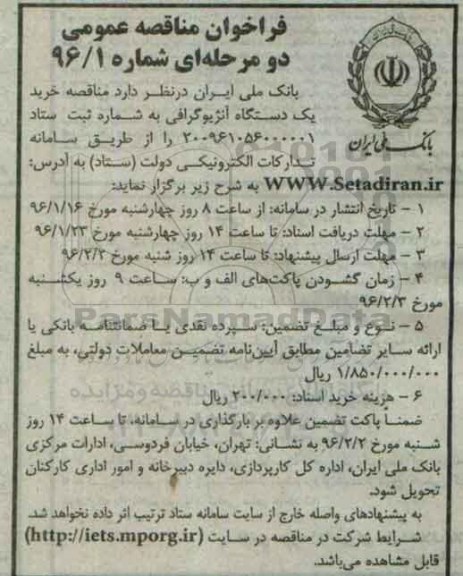 فراخوان مناقصه عمومی
دو مرحله‌ای شماره ۹۶/۱
بانک ملی ایران
بانک ملی ایران درنظر دارد مناقصه خرید
یک دستگاه آنژیوگرافی به شماره ثبت ستاد
۲۰۰۹۶۱۰۵۶۰۰۰۰۰۱ را از طریق سامانه
تدارکات الکترونیکی دولت (ستاد) به آدرس:
WWW.Setadiran.ir به شرح زیر برگزار نماید:
۱ – تاریخ انتشار در سامانه: از ساعت ۸ روز چهارشنبه مورخ ۹۶/۱/۱۶
۲ – مهلت دریافت اسناد: تا ساعت ۱۴ روز چهارشنبه مورخ ۹۶/۱/۲۳
۳ – مهلت ارسال پیشنهاد: تا ساعت ۱۴ روز شنبه مورخ ۹۶/۲/۲
۴ – زمان گشودن پاکت‌های الف و ب: ساعت ۹ روز یکشنبه
مورخ ۹۶/۲/۳
ParsNamadData
۵ – نوع و مبلغ تضمین: سپرده نقدی یا ضمانتنامه بانکی یا
ارائه سایر تضامین مطابق آیین‌نامه تضمین معاملات دولتی، به مبلغ
۱/۸۵۰/۰۰۰/۰۰۰ ریال
۶ – هزینه خرید اسناد: ۲۰۰/۰۰۰ ریال
ضمناً پاکت تضمین علاوه بر بارگذاری در سامانه، تا ساعت ۱۴ روز
شنبه مورخ ۹۶/۲/۲ به نشانی: تهران، خیابان فردوسی، ادارات مرکزی
بانک ملی ایران، اداره کل کارپردازی، دایره دبیرخانه و امور اداری کارکنان
تحویل شود.
به پیشنهادهای واصله خارج از سایت سامانه ستاد ترتیب اثر داده نخواهد شد.
شرایط شرکت در مناقصه در سایت (http://iets.mporg.ir)
قابل مشاهده می‌باشد.